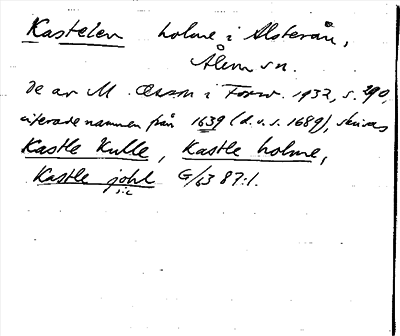 Kastelen holme i Alsterån,
Ålem sn.
De av M. Olsson i Fornv. 1932, s. 290,
citerade namnen från 1639 (d.v.s. 1689), skrivas
Kastle Kulle, Kastle holme,
Kastle johl G/63 87:1.